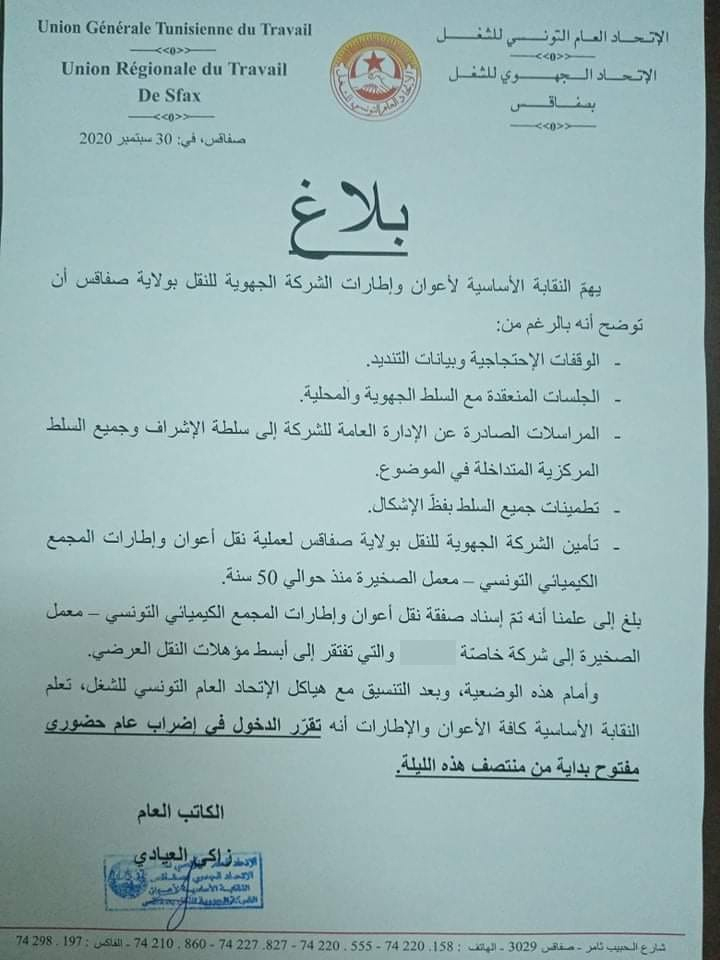 Union Générale Tunisienne du Travail
Union Régionale du Travail
De Sfax
صفاقس، في: 30 سبتمبر 2020
الإتحاد العام التونسي للشغل
الإتحاد الجهوي للشغل
بصفاقس
الإتحاد العام التونسي للشغل
بلاغ
يهمّ النقابة الأساسية لأعوان وإطارات الشركة الجهوية للنقل بولاية صفاقس أن
توضح أنه بالرغم من:
- الوقفات الإحتجاجية وبيانات التنديد.
- الجلسات المنعقدة مع السلط الجهوية والمحلية.
- المراسلات الصادرة عن الإدارة العامة للشركة إلى سلطة الإشراف وجميع السلط
المركزية المتداخلة في الموضوع.
- تطمينات جميع السلط بفظّ الإشكال.
- تأمين الشركة الجهوية للنقل بولاية صفاقس لعملية نقل أعوان وإطارات المجمع
الكيميائي التونسي – معمل الصخيرة منذ حوالي 50 سنة.
بلغ إلى علمنا أنه تمّ إسناد صفقة نقل أعوان وإطارات المجمع الكيميائي التونسي – معمل
الصخيرة إلى شركة خاصّة والتي تفتقر إلى أبسط مؤهلات النقل العرضي.
وأمام هذه الوضعية، وبعد التنسيق مع هياكل الإتحاد العام التونسي للشغل، تعلم
النقابة الأساسية كافة الأعوان والإطارات أنه تقرّر الدخول في إضراب عام حضوري
مفتوح بداية من منتصف هذه الليلة.
الكاتب العام
زاكي العيادي
الإتحاد الجهوي
النقابة الأساسية لأعوان
شارع الحبيب ثامر - صفاقس 3029 - الهاتف : 158. 220 74 - 555 . 220 74 - 827. 227 74 - 860 . 210 74 - الفاكس : 197 . 298 74